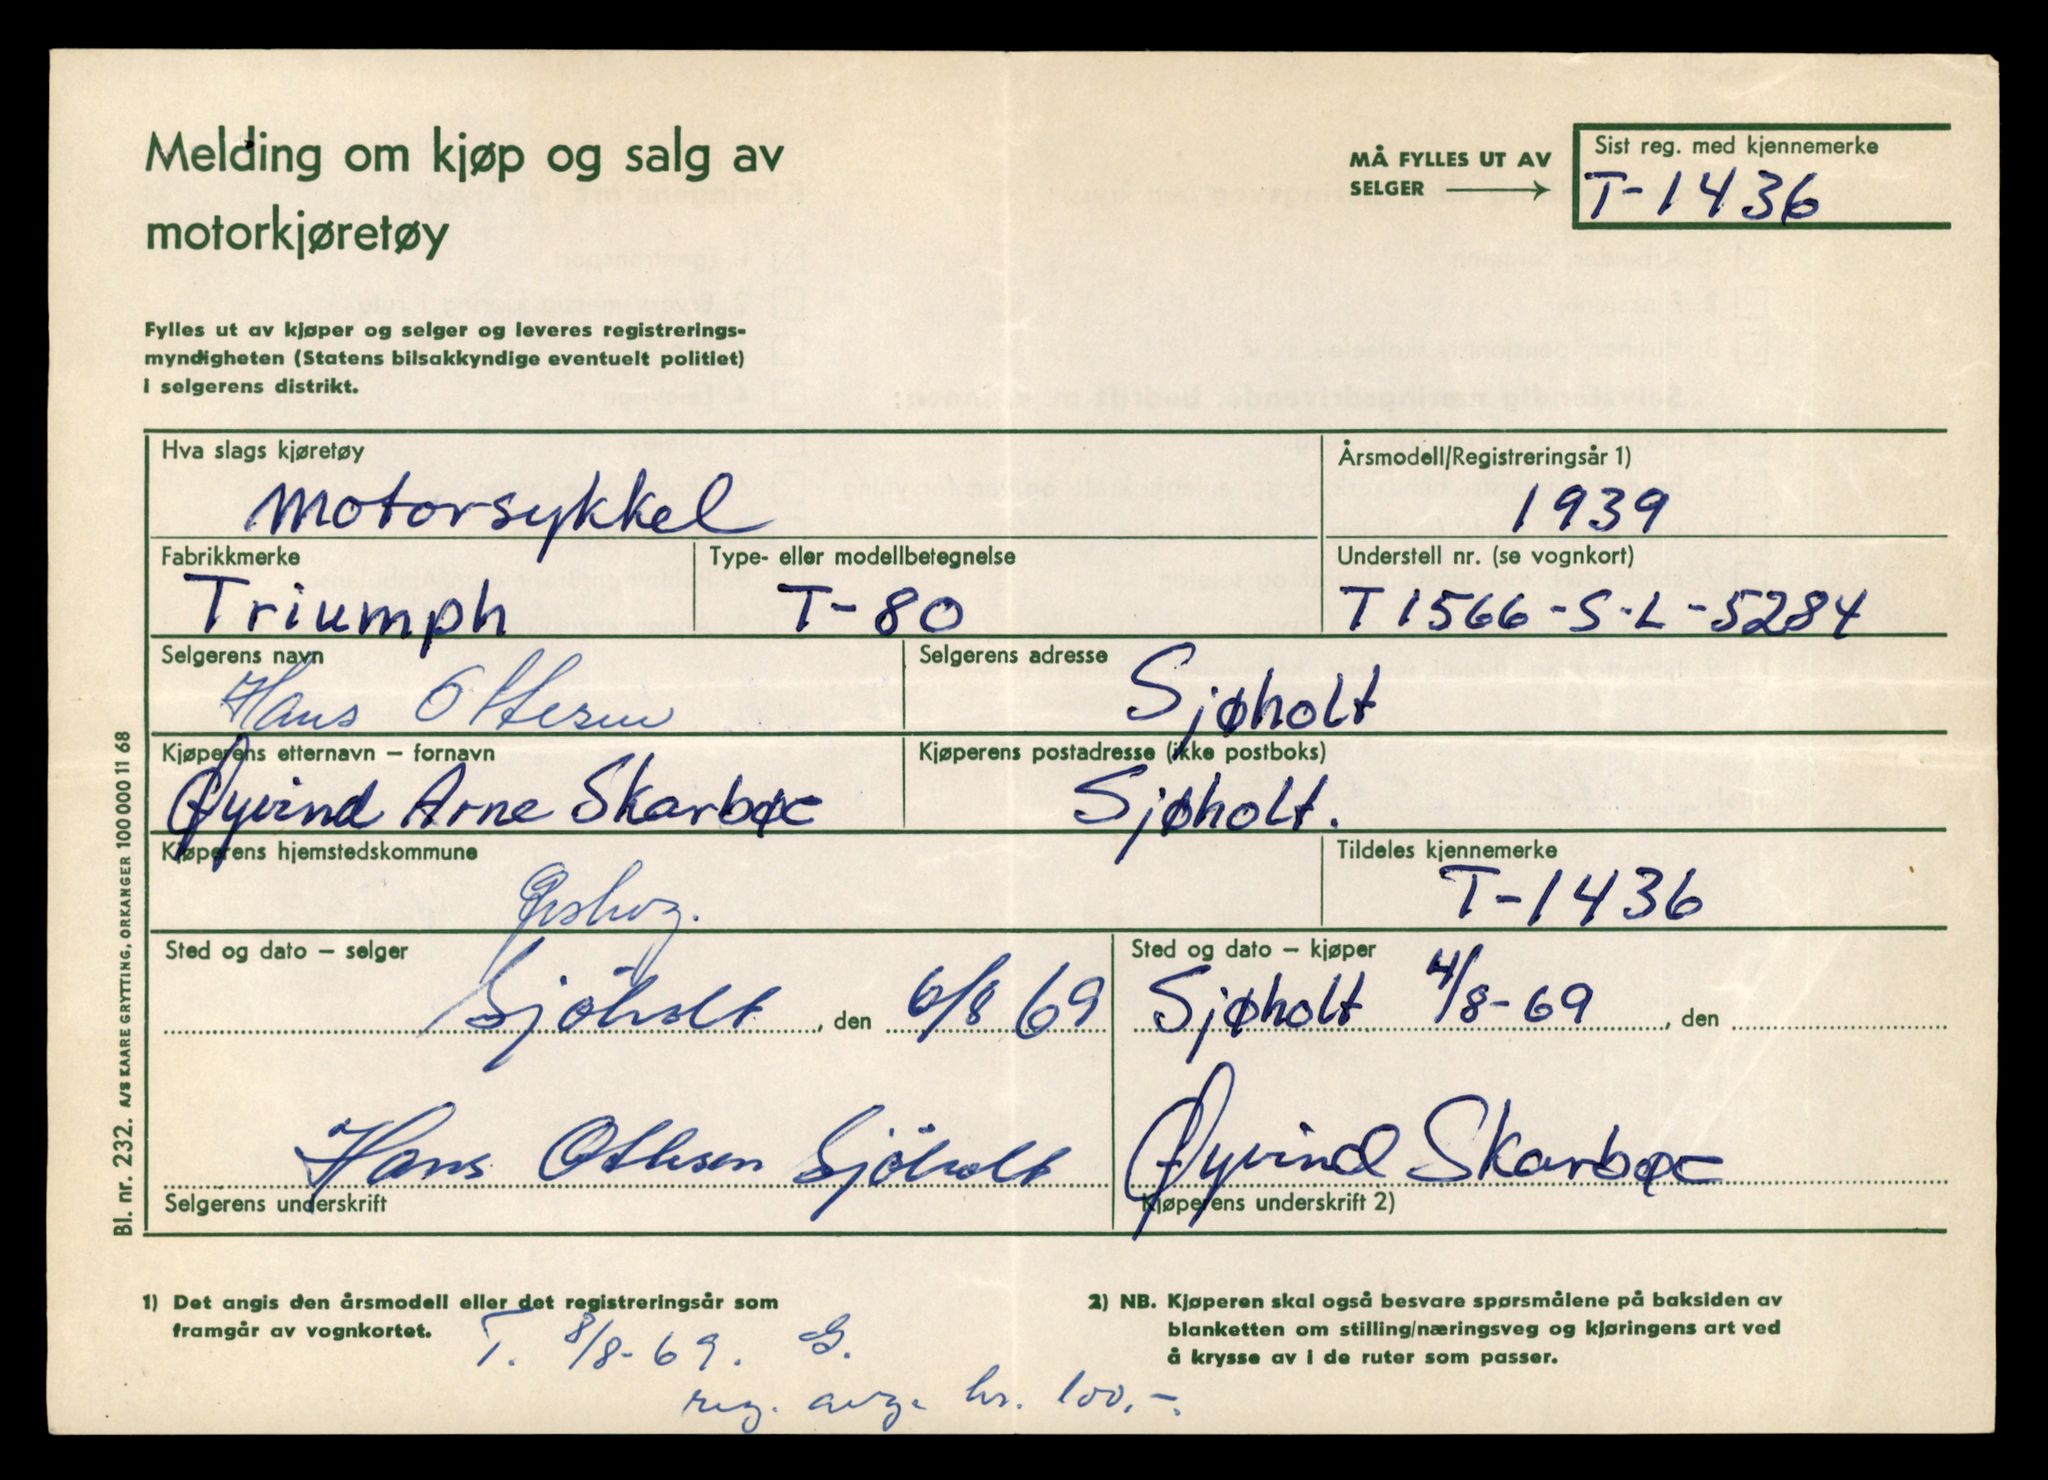 Melding om kjøp og salg av
motorkjøretøy
MÅ FYLLES UT AV
SELGER
Sist reg. med kjennemerke
T-1436
Fylles ut av kjøper og selger og leveres registrerings-
myndigheten (Statens bilsakkyndige eventuelt politiet)
i selgerens distrikt.
Hva slags kjøretøy
Motorsykkel
Årsmodell/Registreringsår 1)
1939
Fabrikkmerke
Triumph
Type- eller modellbetegnelse
T-80
Understell nr. (se vognkort)
T1566-S-L-5284
Selgerens navn
Hans Ottesen
Selgerens adresse
Sjøholt
Kjøperens etternavn – fornavn
Øyvind Arne Skarbøe
Kjøperens postadresse (ikke postboks)
Sjøholt.
Kjøperens hjemstedskommune
Ørskog.
Tildeles kjennemerke
T-1436
Sted og dato – selger
Sjöholt, den 6/8 69
Sted og dato – kjøper
Sjøholt 4/8-69, den
Hans Ottesen Sjöholt
Selgerens underskrift
Øyvind Skarbøe
Kjøperens underskrift 2)
1) Det angis den årsmodell eller det registreringsår som
framgår av vognkortet.
2) NB. Kjøperen skal også besvare spørsmålene på baksiden av
blanketten om stilling/næringsveg og kjøringens art ved
å krysse av i de ruter som passer.
T. 8/8-69. G.
reg. avg. kr. 100,-.
Bl. nr. 232. A/S KAARE GRYTTING, ORKANGER 100 000 11 68